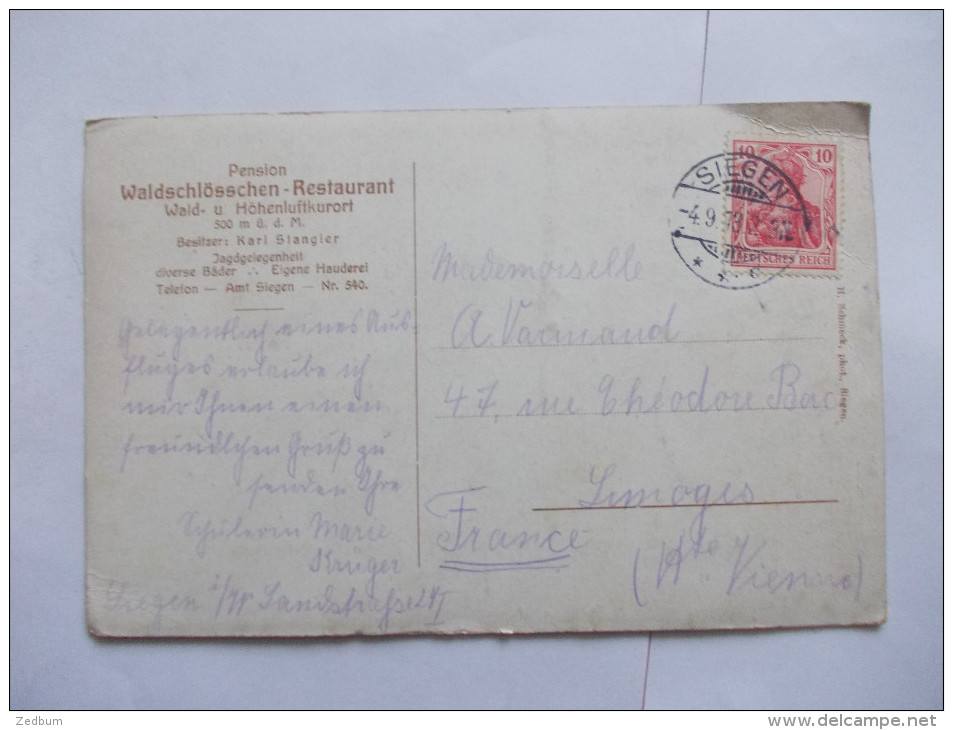 Pension
Waldschlösschen-Restaurant
Wald- u. Höhenluftkurort
500 m ü. d. M.
Besitzer: Karl Stangier
Jagdgelegenheit
diverse Bäder ∴ Eigene Hauderei
Telefon — Amt Siegen — Nr. 540.
Gelegentlich eines Aus-
fluges erlaube ich
mir Ihnen einen
freundlichen Gruß zu
senden Ihre
Schülerin Marie
Krüger
Siegen i/W Sandstraße
10 10
DEUTSCHES REICH
SIEGEN
4.9.13
Mademoiselle
A. Varmand
47, rue Théodore Bac
Limoges
France
(Hte Vienne)
H. Schmeck, phot., Siegen.
Zedbum
www.delcampe.net